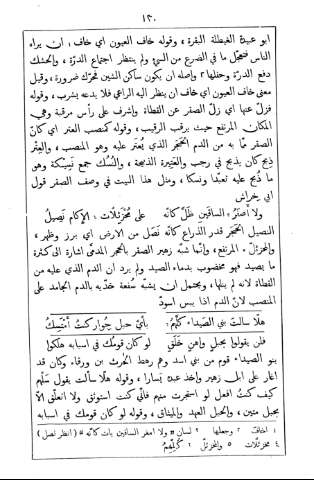 ١٢٠
ابو عبيدة الغيطلة البقرة، وقوله خاف العيون اي خاف: ان يراه
الناس فتعجّل ما في الضرع من السيّ ولم ينتظر اجتماع الدرّة، والحشك
دفع الدرّة وحفلها٢ واصله ان يكون ساكن الشين فحرّك ضرورة، وقيل
معنى خاف العيون اي خاف ان ينظر اليه الراعي فلا يدعه يشرب، وقوله
فزلّ عنها اي زلّ الصقر عن القطاة وأشرف على رأس مرقبة وهي
المكان المرتفع حيث يرقب الرقيب، وقوله كمنصب العتر اي كأنّ
الصقر مما به من الدم الحجر الذي يُعتر عليه وهو المنصب، والعِتْر
ذِبح كان يذبح في رجب والعتيرة الذبيحة، والنُسُك جمع نَسِيكة وهو
ما ذُبح عليه تعبّدا ونسكا، ومثل هذا البيت في وصف الصقر قول
ابي خراش
ولا أصغر الساقين ظلّ كأنّه على مُحْزَئِلّات٤ الإكام نَصِيلُ
النصيل الحجر قدر الذراع كأنّه نَصَل من الارض اي برز وظهر،
والمحزئلّ٥ المرتفع، وإنما شبّه زهير الصقر بالحجر المدمّى اشارة الى كثرة
ما يصيد فهو مخضوب بدماء الصيد ولم يرد أن الدم الذي عليه من
القطاة لانه لم ينلها، ويحتمل ان يشبّه سُفعة خدّيه بالدم الجامد على
المنصب لانّ الدم اذا يبس اسودّ
هلّا سالت بني الصَيداء كُلَّهُمُ٦ بأيّ حبل جِوار كنتُ أمْتَسِكُ
فلن يقولوا بحبلٍ واهنٍ خَلَقٍ لو كان قومك في اسبابه هلكوا
بنو الصيداء قوم من بني اسد وهم رهط الحارث بن ورقاء وكان قد
اغار على ابل زهير وأخذ عبده يسارا، وقوله هلّا سألت يقول سَلْهم
كيف كنتُ افعل لو استجرت منهم فاني كنت استوثق ولا اتعلّق الّا
بحبل متين، والحبل العهد والميثاق، وقوله لو كان قومك في اسبابه
١ اخاف ٢ وجعلها ٣ لسان « ولا امغر الساقين بات كأنّه » (انظر نصل)
٤ مخزئلّات ٥ والمخزئلّ ٦ كُلِّهُمُ